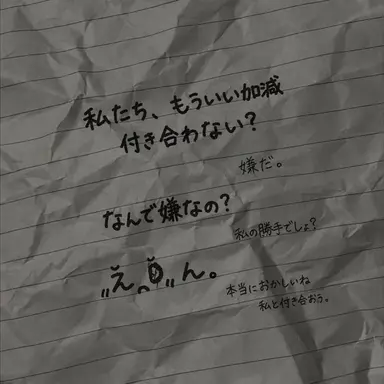 私たち、もういい加減
付き合わない?
嫌だ。
なんで嫌なの?
私の勝手でしょ?
え ん。
本当におかしいね
私と付き合おう。